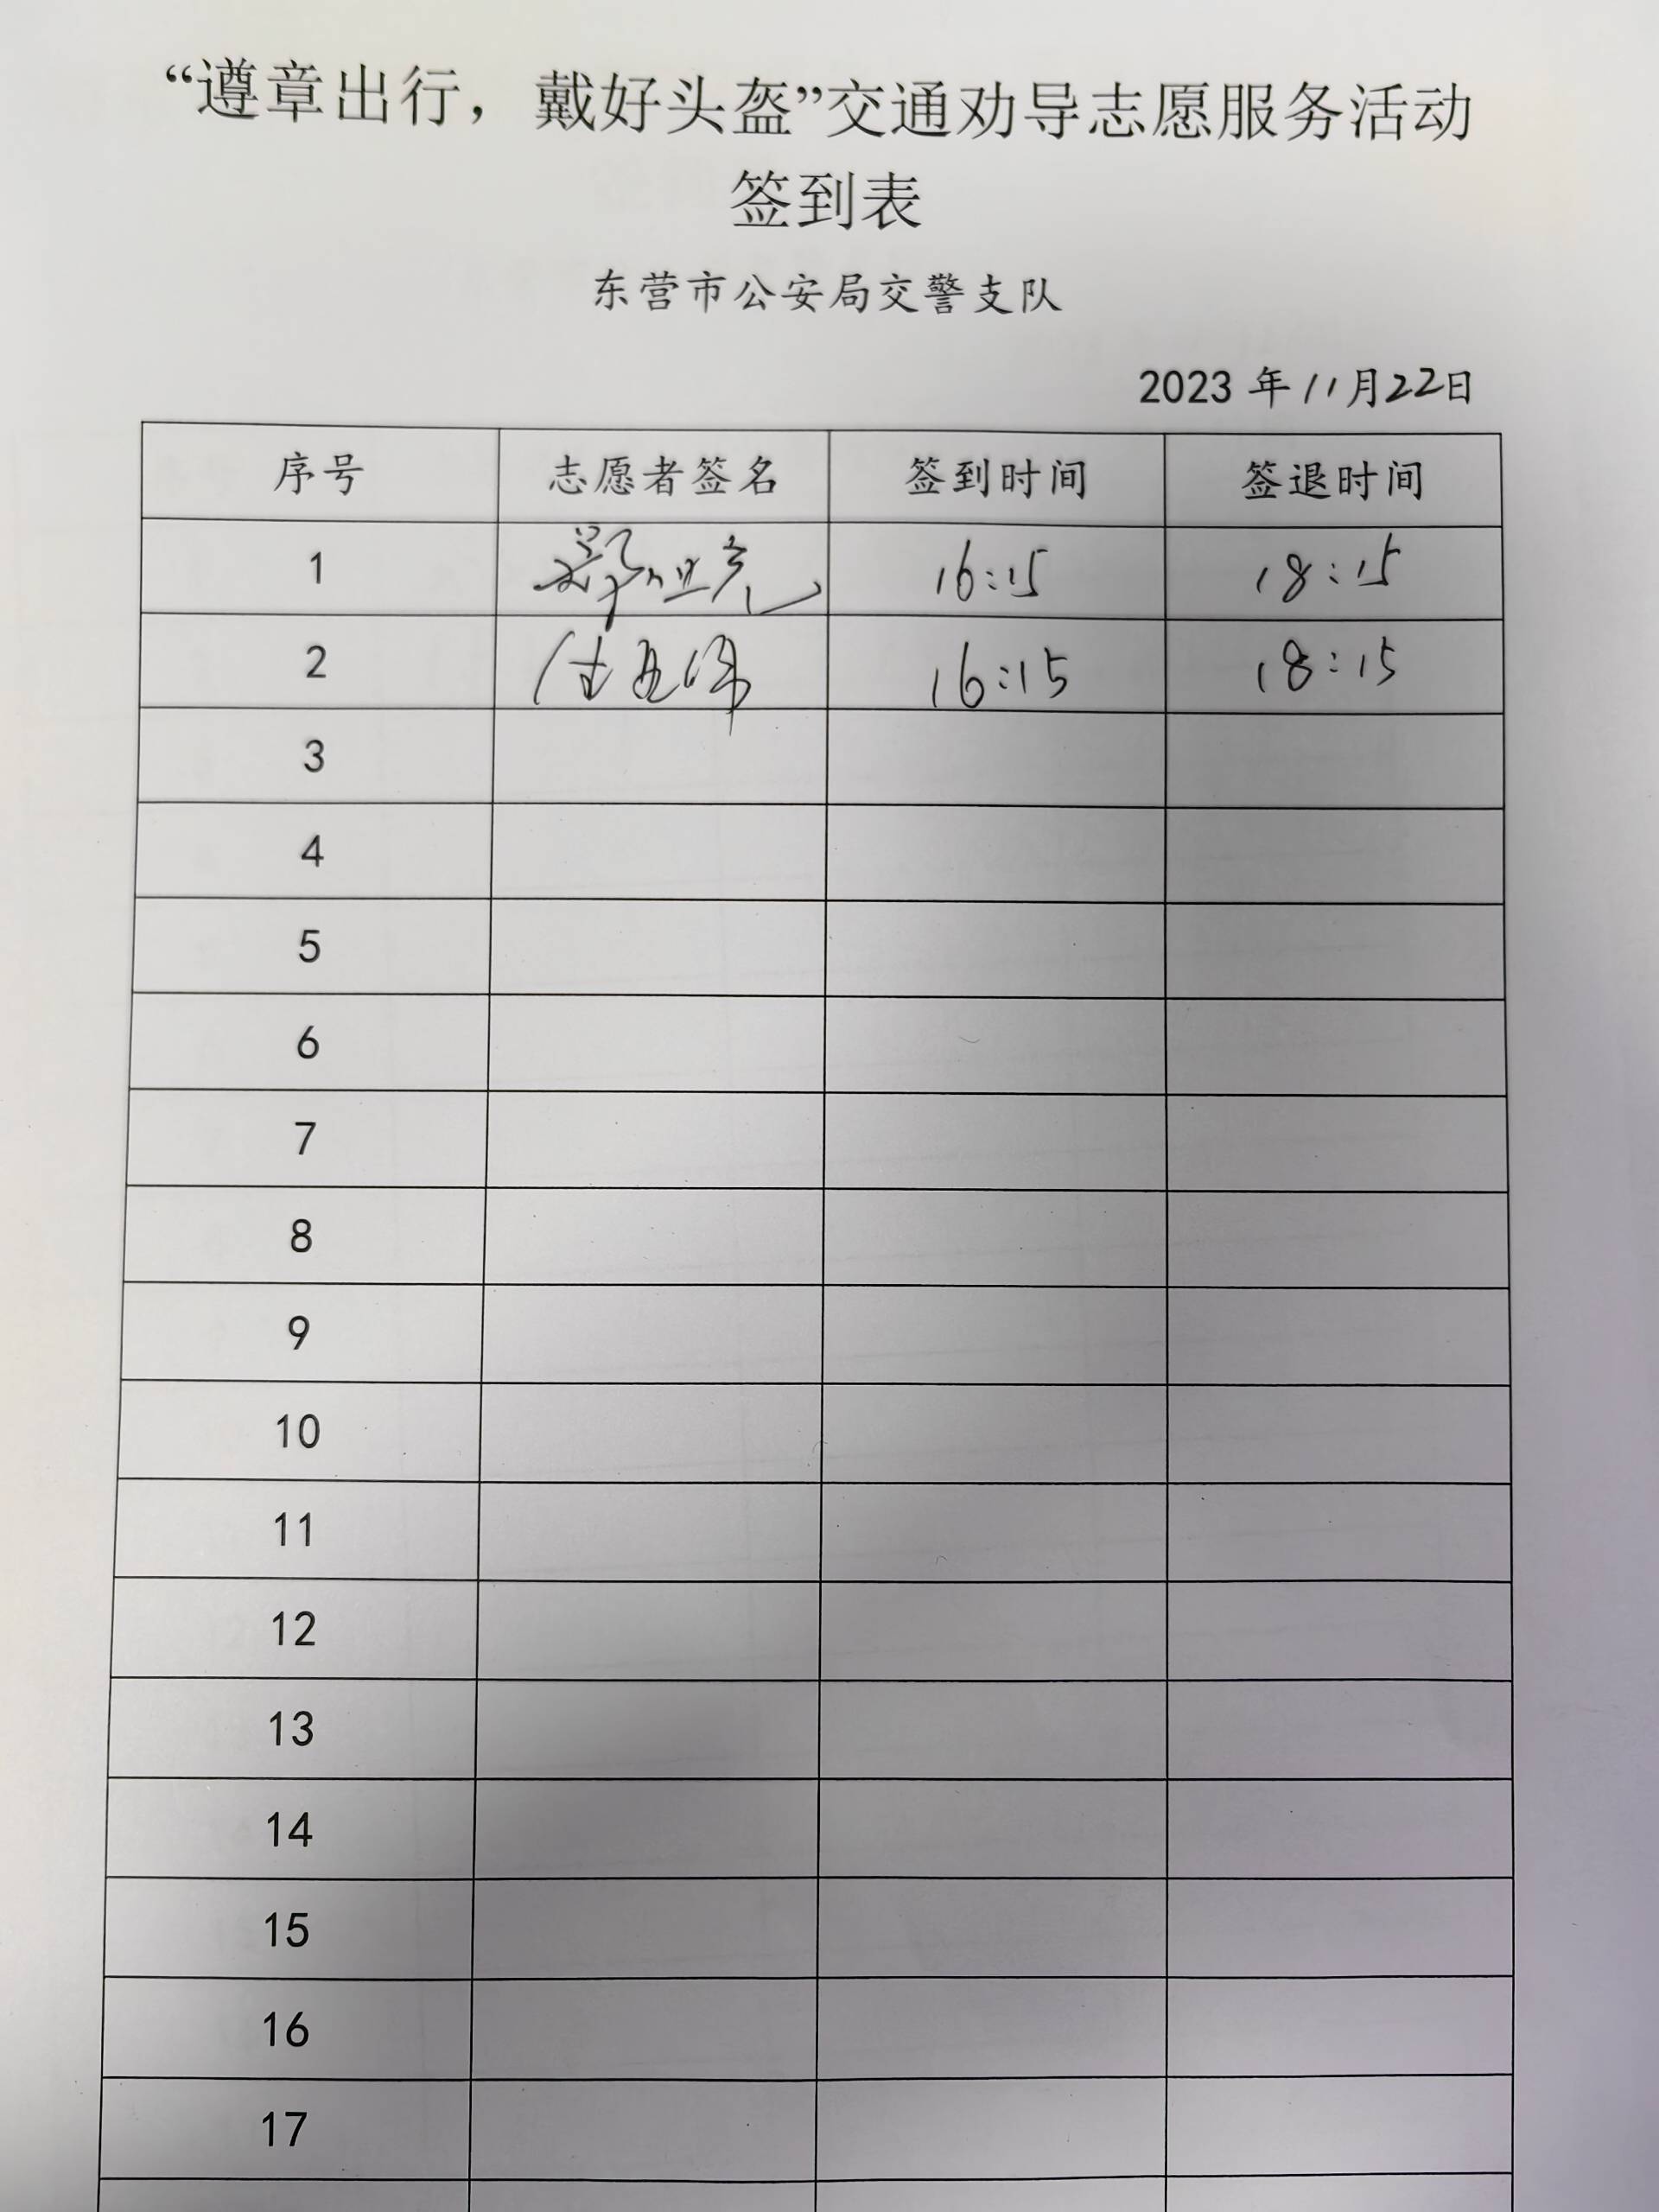 “遵章出行，戴好头盔”交通劝导志愿服务活动
签到表
东营市公安局交警支队
2023 年 11月22日
序号 志愿者签名 签到时间 签退时间
1 16:15 18:15
2 16:15 18:15
3
4
5
6
7
8
9
10
11
12
13
14
15
16
17